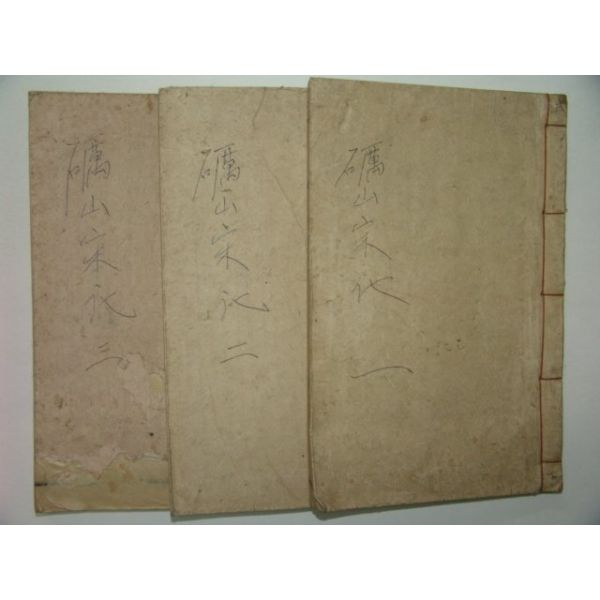 礪山宋氏 一
礪山宋氏 二
礪山宋氏 三